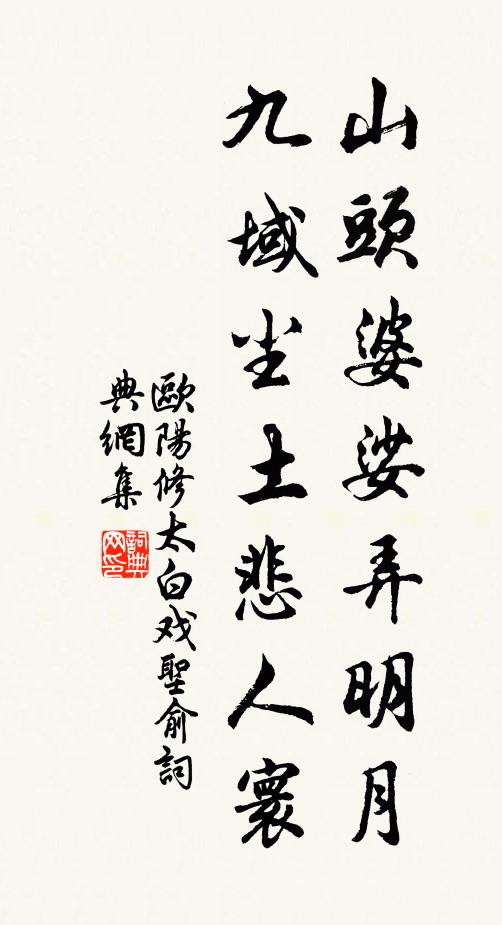 山頭婆娑弄明月
九域尘土悲人寰
歐陽修太白戏聖俞詞
典網集
詞典网印